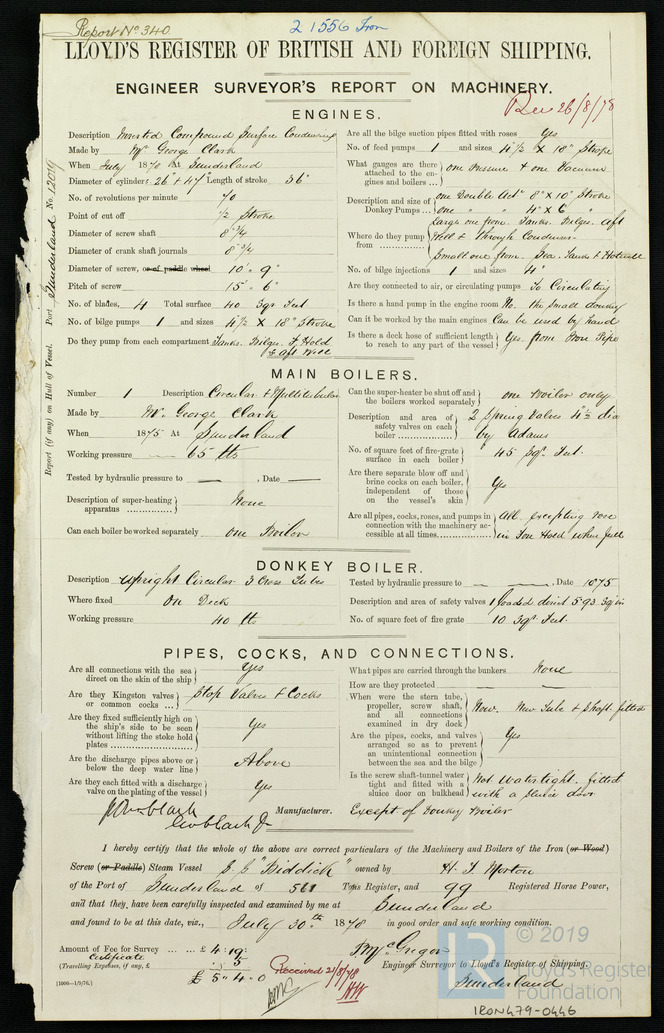 Report No. 340.
2 1556 Iron
LLOYD'S REGISTER OF BRITISH AND FOREIGN SHIPPING.
ENGINEER SURVEYOR'S REPORT ON MACHINERY.
Rec 26/8/78
ENGINES.
Description Inverted Compound Surface Condensing
Made by Mr George Clark
When July 1870 At Sunderland
Diameter of cylinders 26" + 47" Length of stroke 36"
No. of revolutions per minute 70
Point of cut off 1/2 Stroke
Diameter of screw shaft 8 3/4
Diameter of crank shaft journals 8 3/4
Diameter of screw, or of paddle wheel 10' 9"
Pitch of screw 15' 6"
No. of blades, 4 Total surface 40 Sqr Feet
No. of bilge pumps 1 and sizes 4 1/2 X 18" Stroke
Do they pump from each compartment Tanks. Bilges. F. Hold
& Aft Well
Are all the bilge suction pipes fitted with roses Yes
No. of feed pumps 1 and sizes 4 1/2 X 18" Stroke
What gauges are there attached to the engines and boilers ... one Pressure + one Vacuum
Description and size of Donkey Pumps ... one Double Act 8" X 10" Stroke
one " " 4" X 6 "
Where do they pump from Large one from. Tanks. Bilges. Aft
Well & through Condenser.
Small one from. Sea. Tanks & Hotwell
No. of bilge injections 1 and sizes 4"
Are they connected to air, or circulating pumps To Circulating
Is there a hand pump in the engine room No. the Small donkey
Can it be worked by the main engines Can be used by hand
Is there a deck hose of sufficient length to reach to any part of the vessel Yes. from Iron Pipe
Port Sunderland No. 12019
Report (if any) on Hull of Vessel.
MAIN BOILERS.
Number 1 Description Circular & Multitubular
Made by Mr. George Clark
When 1875 At Sunderland
Working pressure 65 lbs
Tested by hydraulic pressure to — , Date —
Description of super-heating apparatus None
Can each boiler be worked separately one Boiler
Can the super-heater be shut off and the boilers worked separately one Boiler only
Description and area of safety valves on each boiler 2 Spring Valves 4 1/2 dia
by Adams
No. of square feet of fire-grate surface in each boiler 45 Sqr. Feet.
Are there separate blow off and brine cocks on each boiler, independent of those on the vessel's skin Yes
Are all pipes, cocks, roses, and pumps in connection with the machinery accessible at all times All. excepting rose
in Fore Hold when full
DONKEY BOILER.
Description Upright Circular 3 Cross Tubes
Where fixed On Deck
Working pressure 40 lbs
Tested by hydraulic pressure to — , Date 1875
Description and area of safety valves 1 loaded direct 5.93 Sq in
No. of square feet of fire grate 10 Sqr Feet.
PIPES, COCKS, AND CONNECTIONS.
Are all connections with the sea direct on the skin of the ship Yes
Are they Kingston valves or common cocks Stop Valves & Cocks
Are they fixed sufficiently high on the ship's side to be seen without lifting the stoke hold plates Yes
Are the discharge pipes above or below the deep water line Above
Are they each fitted with a discharge valve on the plating of the vessel Yes
What pipes are carried through the bunkers None
How are they protected —
When were the stern tube, propeller, screw shaft, and all connections examined in dry dock Now. New Tube & Shaft fitted
Are the pipes, cocks, and valves arranged so as to prevent an unintentional connection between the sea and the bilge Yes
Is the screw shaft-tunnel water tight and fitted with a sluice door on bulkhead Not Watertight. fitted
with a sluice door
Geo Clark Jr Manufacturer. Except of Donkey Boiler
I hereby certify that the whole of the above are correct particulars of the Machinery and Boilers of the Iron (or Wood)
Screw (or Paddle) Steam Vessel S.S "Biddick" owned by H. T. Morton
of the Port of Sunderland of 561 Tons Register, and 99 Registered Horse Power,
and that they, have been carefully inspected and examined by me at Sunderland
and found to be at this date, viz., July 30th 1878 in good order and safe working condition.
Amount of Fee for Survey ... ... £ 4.19.
Certificate 5
(Travelling Expenses, if any, £
£ 5 " 4 . 0
Received 21/8/78
McGregor
Engineer Surveyor to Lloyd's Register of Shipping.
Sunderland
[1000—1/9/76.]
© 2019
LR
Lloyd's Register
Foundation
IRON479-0446